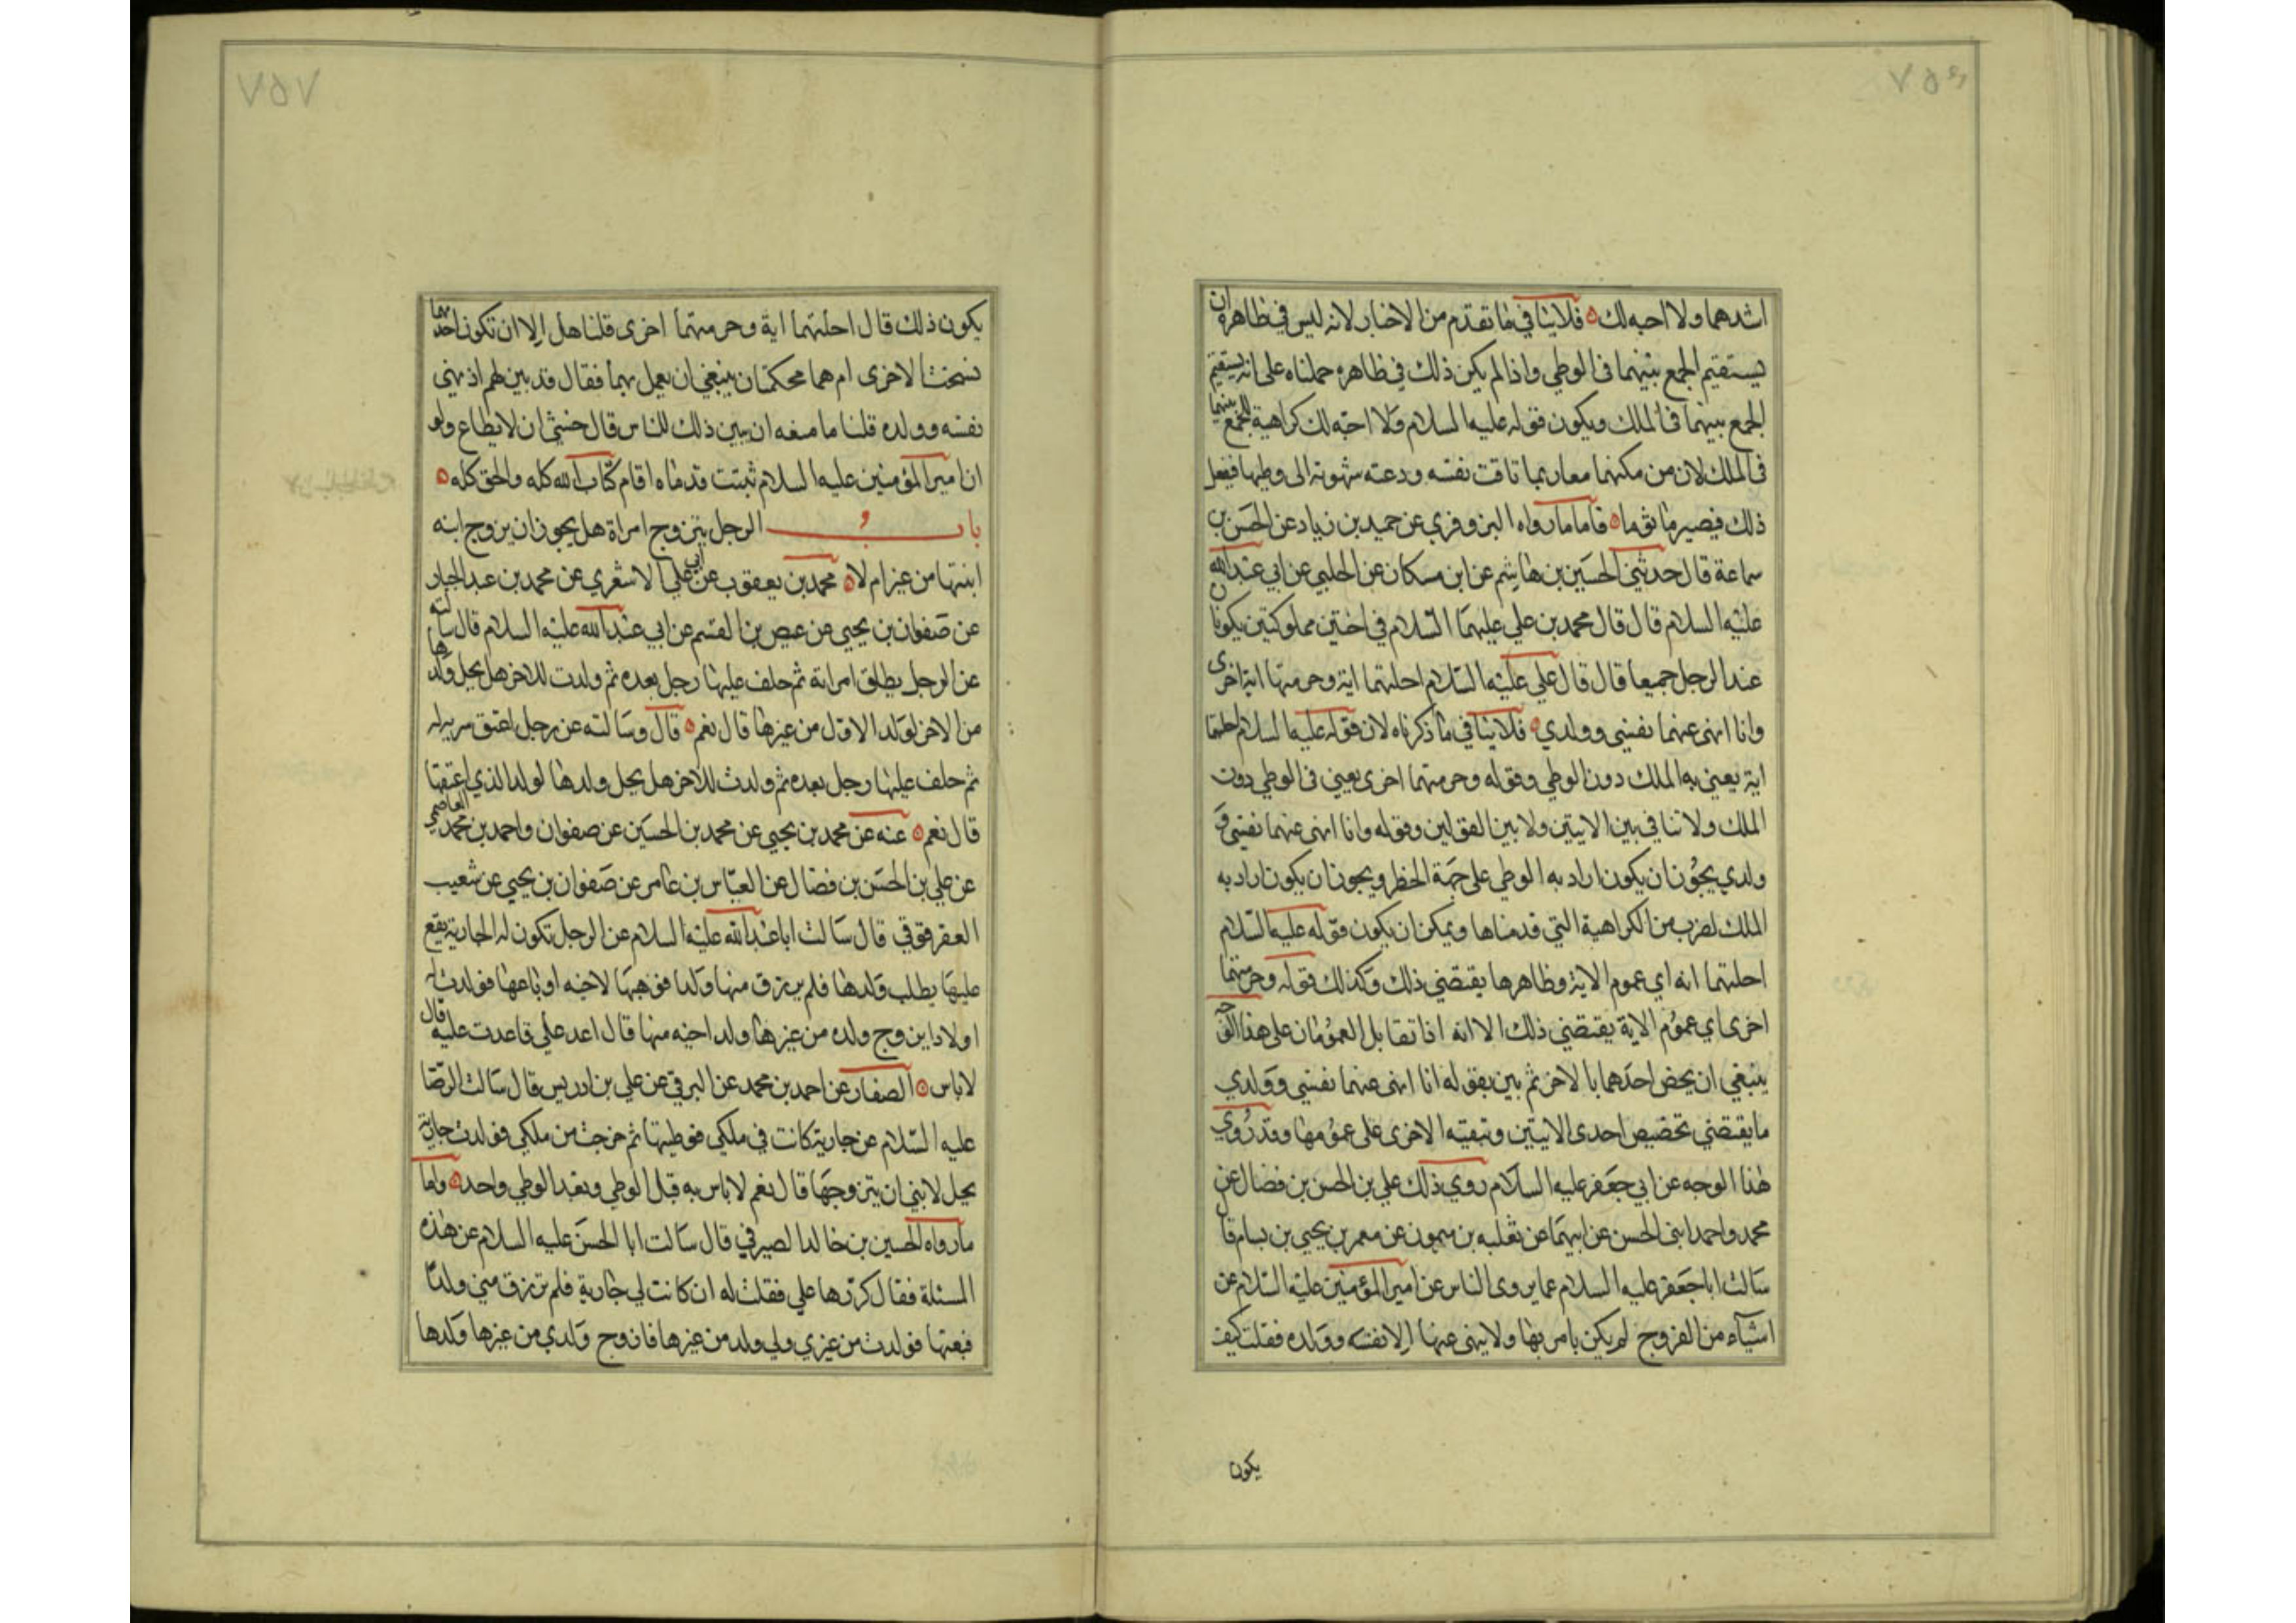 ٧٥٦
اشدهما ولا احبه لك فلا ينافي ما تقدم من الاخبار لانه ليس في ظاهره ان
يستقيم الجمع بينهما في الوطي واذا لم يكن ذلك في ظاهره حملناه على انه يستقيم
الجمع بينهما في الملك ويكون قوله عليه السلام ولا احبه لك كراهية للجمع بينهما
في الملك لان من مكنهما معا ربما تاقت نفسه ودعته شهوته الى وطيها فيفعل
ذلك فيصير ماثوما فاما ما رواه البزوفري عن حميد بن زياد عن الحسن بن
سماعة قال حدثني الحسين بن هاشم عن ابن مسكان عن الحلبي عن ابي عبد الله
عليه السلام قال قال محمد بن علي عليهما السلام في اختين مملوكتين يكونان
عند الرجل جميعا قال قال علي عليه السلام احلتهما اية وحرمتها اية اخرى
وانا انهى عنهما نفسي وولدي فلا ينافي ما ذكرناه لان قوله عليه السلام احلتهما
اية يعني به الملك دون الوطي وقوله وحرمتهما اخرى يعني في الوطي دون
الملك ولا تنافي بين الايتين ولا بين القولين وقوله وانا انهى عنهما نفسي و
ولدي يجوز ان يكون اراد به الوطي على جهة الحظر ويجوز ان يكون اراد به
الملك لضرب من الكراهية التي قدمناها ويمكن ان يكون قوله عليه السلام
احلتهما اية اي عموم الاية وظاهرها يقتضي ذلك وكذلك قوله وحرمتهما
اخرى اي عموم الاية يقتضي ذلك الا انه اذا تقابل العمومان على هذا الوجه
ينبغي ان يخص احدهما بالاخر ثم بين بقوله انا انهى عنهما نفسي وولدي
ما يقتضي تخصيص احدى الايتين وتبقيه الاخرى على عمومها وقد روي
هذا الوجه عن ابي جعفر عليه السلام روي ذلك علي بن الحسن بن فضال عن
محمد واحمد ابني الحسن عن ابيهما عن ثعلبه بن ميمون عن معمر بن يحيى بن بسام قال
سالت ابا جعفر عليه السلام عما يروى الناس عن امير المؤمنين عليه السلام عن
اشياء من الفروج لم يكن يامر بها ولا ينهى عنها الا نفسه وولده فقلت كيف
يكون
٧٥٧
يكون ذلك قال احلتهما اية وحرمتهما اخرى قلنا هل الا ان تكون احدهما
نسخت الاخرى ام هما محكمتان ينبغي ان يعمل بهما فقال قد بين لهم اذ نهى
نفسه وولده قلنا ما منعه ان يبين ذلك للناس قال خشي ان لا يطاع ولو
ان امير المؤمنين عليه السلام ثبتت قدماه اقام كتاب الله كله والحق كله
باب الرجل يتزوج امراة هل يجوز ان يزوج ابنه
ابنتها من غيره ام لا محمد بن يعقوب عن ابي علي الاشعري عن محمد بن عبد الجبار
عن صفوان بن يحيى عن عيص بن القسم عن ابي عبد الله عليه السلام قال سالته
عن الرجل يطلق امراته ثم خلف عليها رجل بعده ثم ولدت للاخر هل يحل ولدها
من الاخر لولد الاول من غيرها قال نعم قال وسالته عن رجل اعتق سرية له
ثم خلف عليها رجل بعده ثم ولدت للاخر هل يحل ولدها لولد الذي اعتقها
قال نعم عنه عن محمد بن يحيى عن محمد بن الحسين عن صفوان واحمد بن محمد العاصمي
عن علي بن الحسن بن فضال عن العباس بن عامر عن صفوان بن يحيى عن شعيب
العقرقوفي قال سالت ابا عبد الله عليه السلام عن الرجل تكون له الجارية يقع
عليها يطلب ولدها فلم يرزق منها ولدا فوهبها لاخيه او باعها فولدت له
اولادا يزوج ولده من غيرها ولد اخيه منها قال اعد علي فاعدت عليه قال
لا باس الصفار عن احمد بن محمد عن البرقي عن علي بن ادريس قال سالت الرضا
عليه السلام عن جارية كانت في ملكي فوطيتها ثم خرجت من ملكي فولدت جارية
يحل لابني ان يتزوجها قال نعم لا باس به قبل الوطي وبعد الوطي واحد واما
ما رواه الحسين بن خالد الصيرفي قال سالت ابا الحسن عليه السلام عن هذه
المسئلة فقال كررها علي فقلت له ان كانت لي جارية فلم ترزق مني ولدا
فبعتها فولدت من غيري ولي ولد من غيرها فازوج ولدي من غيرها ولدها